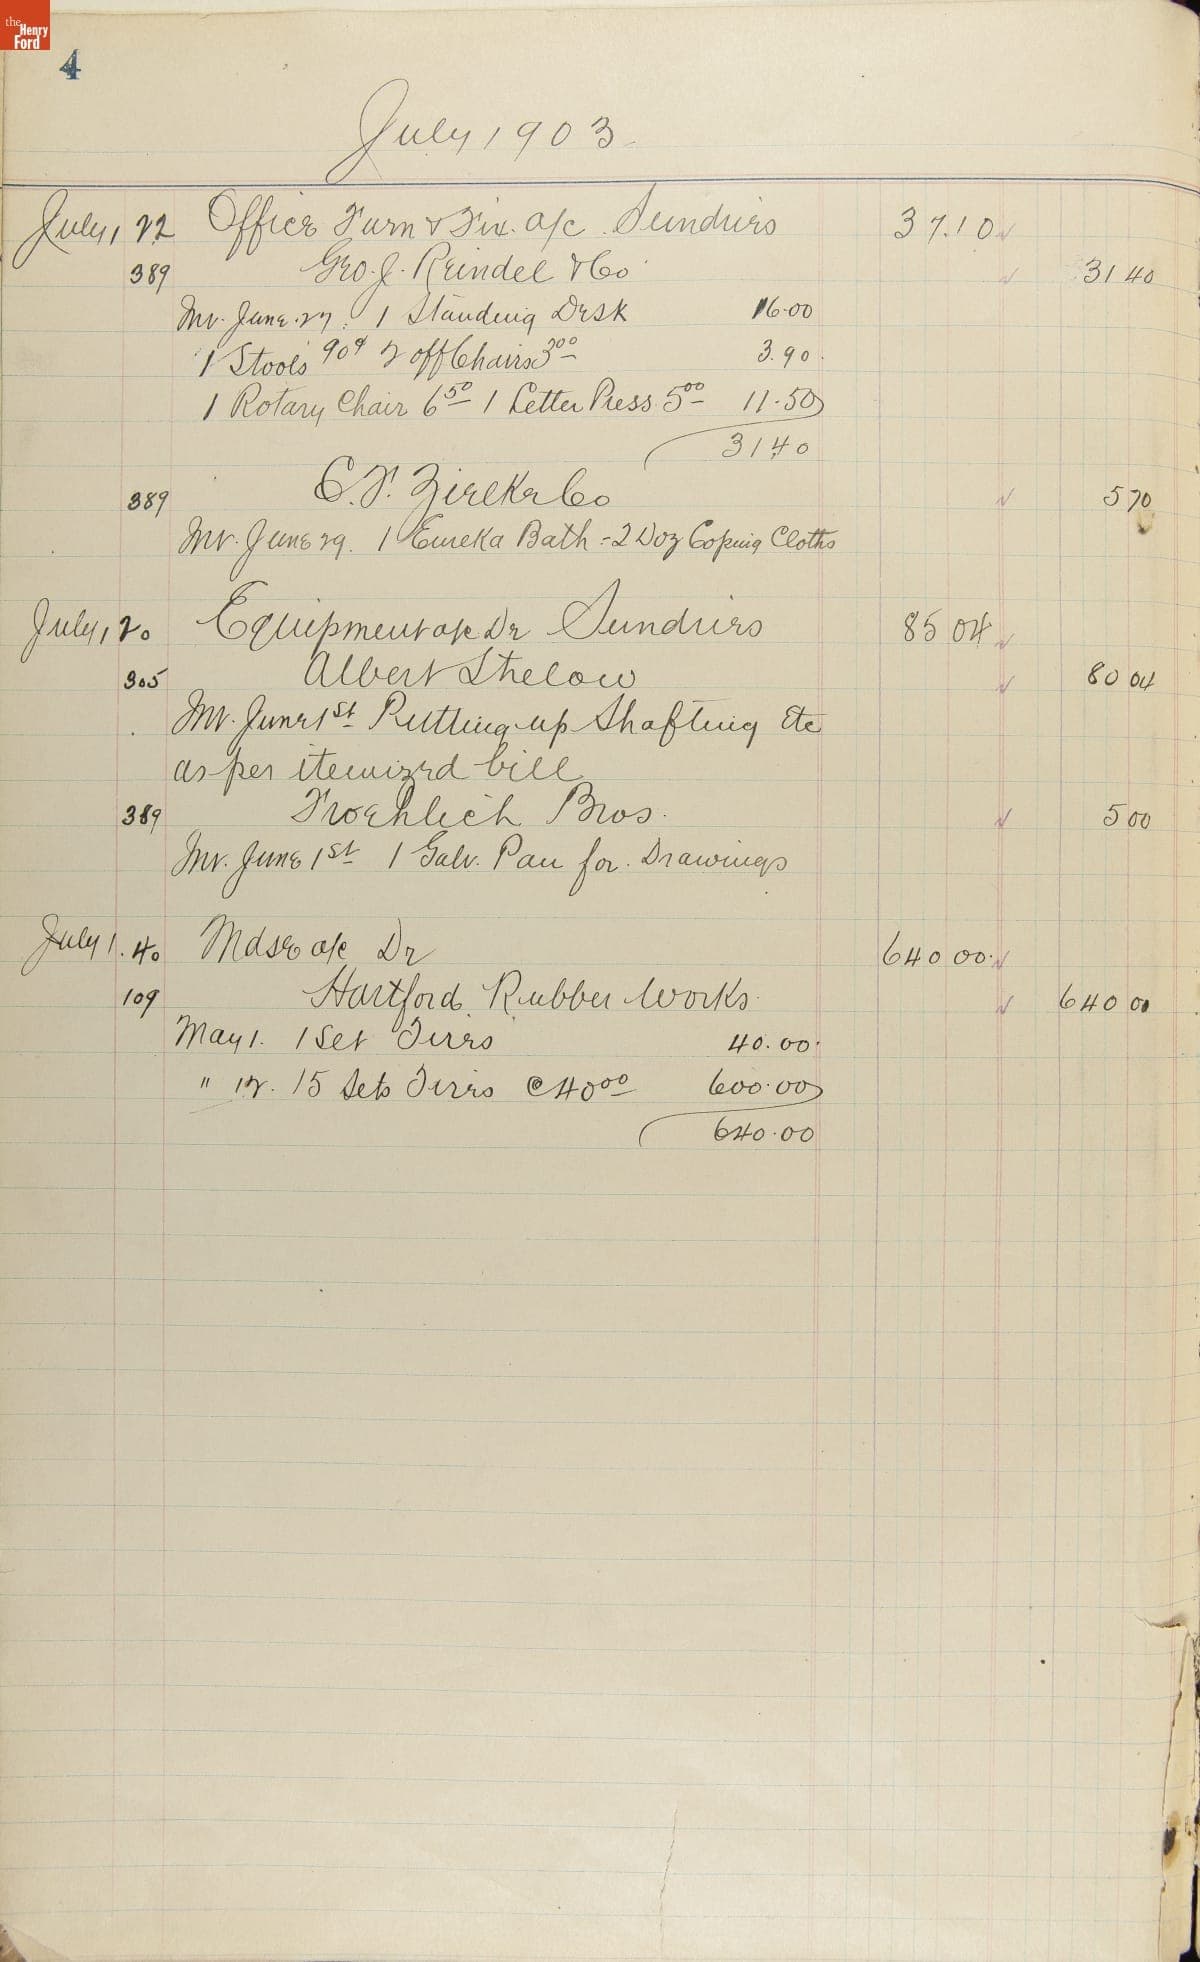 the Henry Ford
4
July 1903
July 1 22 Office Furn & Fix. a/c Sundries 37.10
389 Geo. J. Reindel & Co 31 40
Inv. June 27. 1 Standing Desk 16.00
1 Stools 90¢ 2 off Chairs 3 00 3.90
1 Rotary Chair 6 50 1 Letter Press 5 00 11.50
31 40
389 & Co 5 70
Inv. June 29. 1 Eureka Bath - 2 Doz Coping Cloths
July 1 20 Equipment a/c Dr Sundries 85 04
305 Albert Strelow 80 04
Inv. June 1st Putting up Shafting Etc
as per itemized bill
389 Froehlich Bros. 5 00
Inv. June 1st 1 Galv. Pan for Drawings
July 1. 40 Mdse a/c Dr 640 00
109 Hartford Rubber Works 640 00
May 1. 1 Set Tires 40.00
" 12. 15 Sets Tires @ 40 00 600.00
640.00